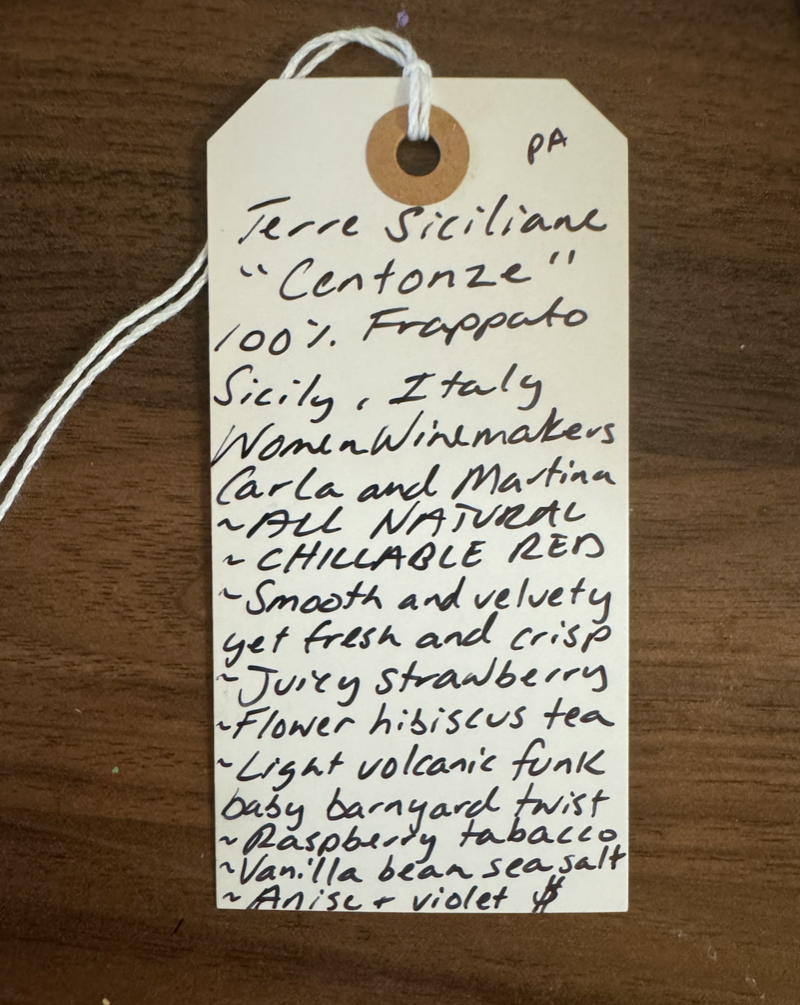 PA
Terre Siciliane
"Centonze"
100% Frappato
Sicily, Italy
Women Winemakers
Carla and Martina
~ALL NATURAL
~CHILLABLE RED
~Smooth and velvety
yet fresh and crisp
~Juicy strawberry
~Flower hibiscus tea
~Light volcanic funk
baby barnyard twist
~Raspberry tabacco
~Vanilla bean sea salt
~Anise + violet $